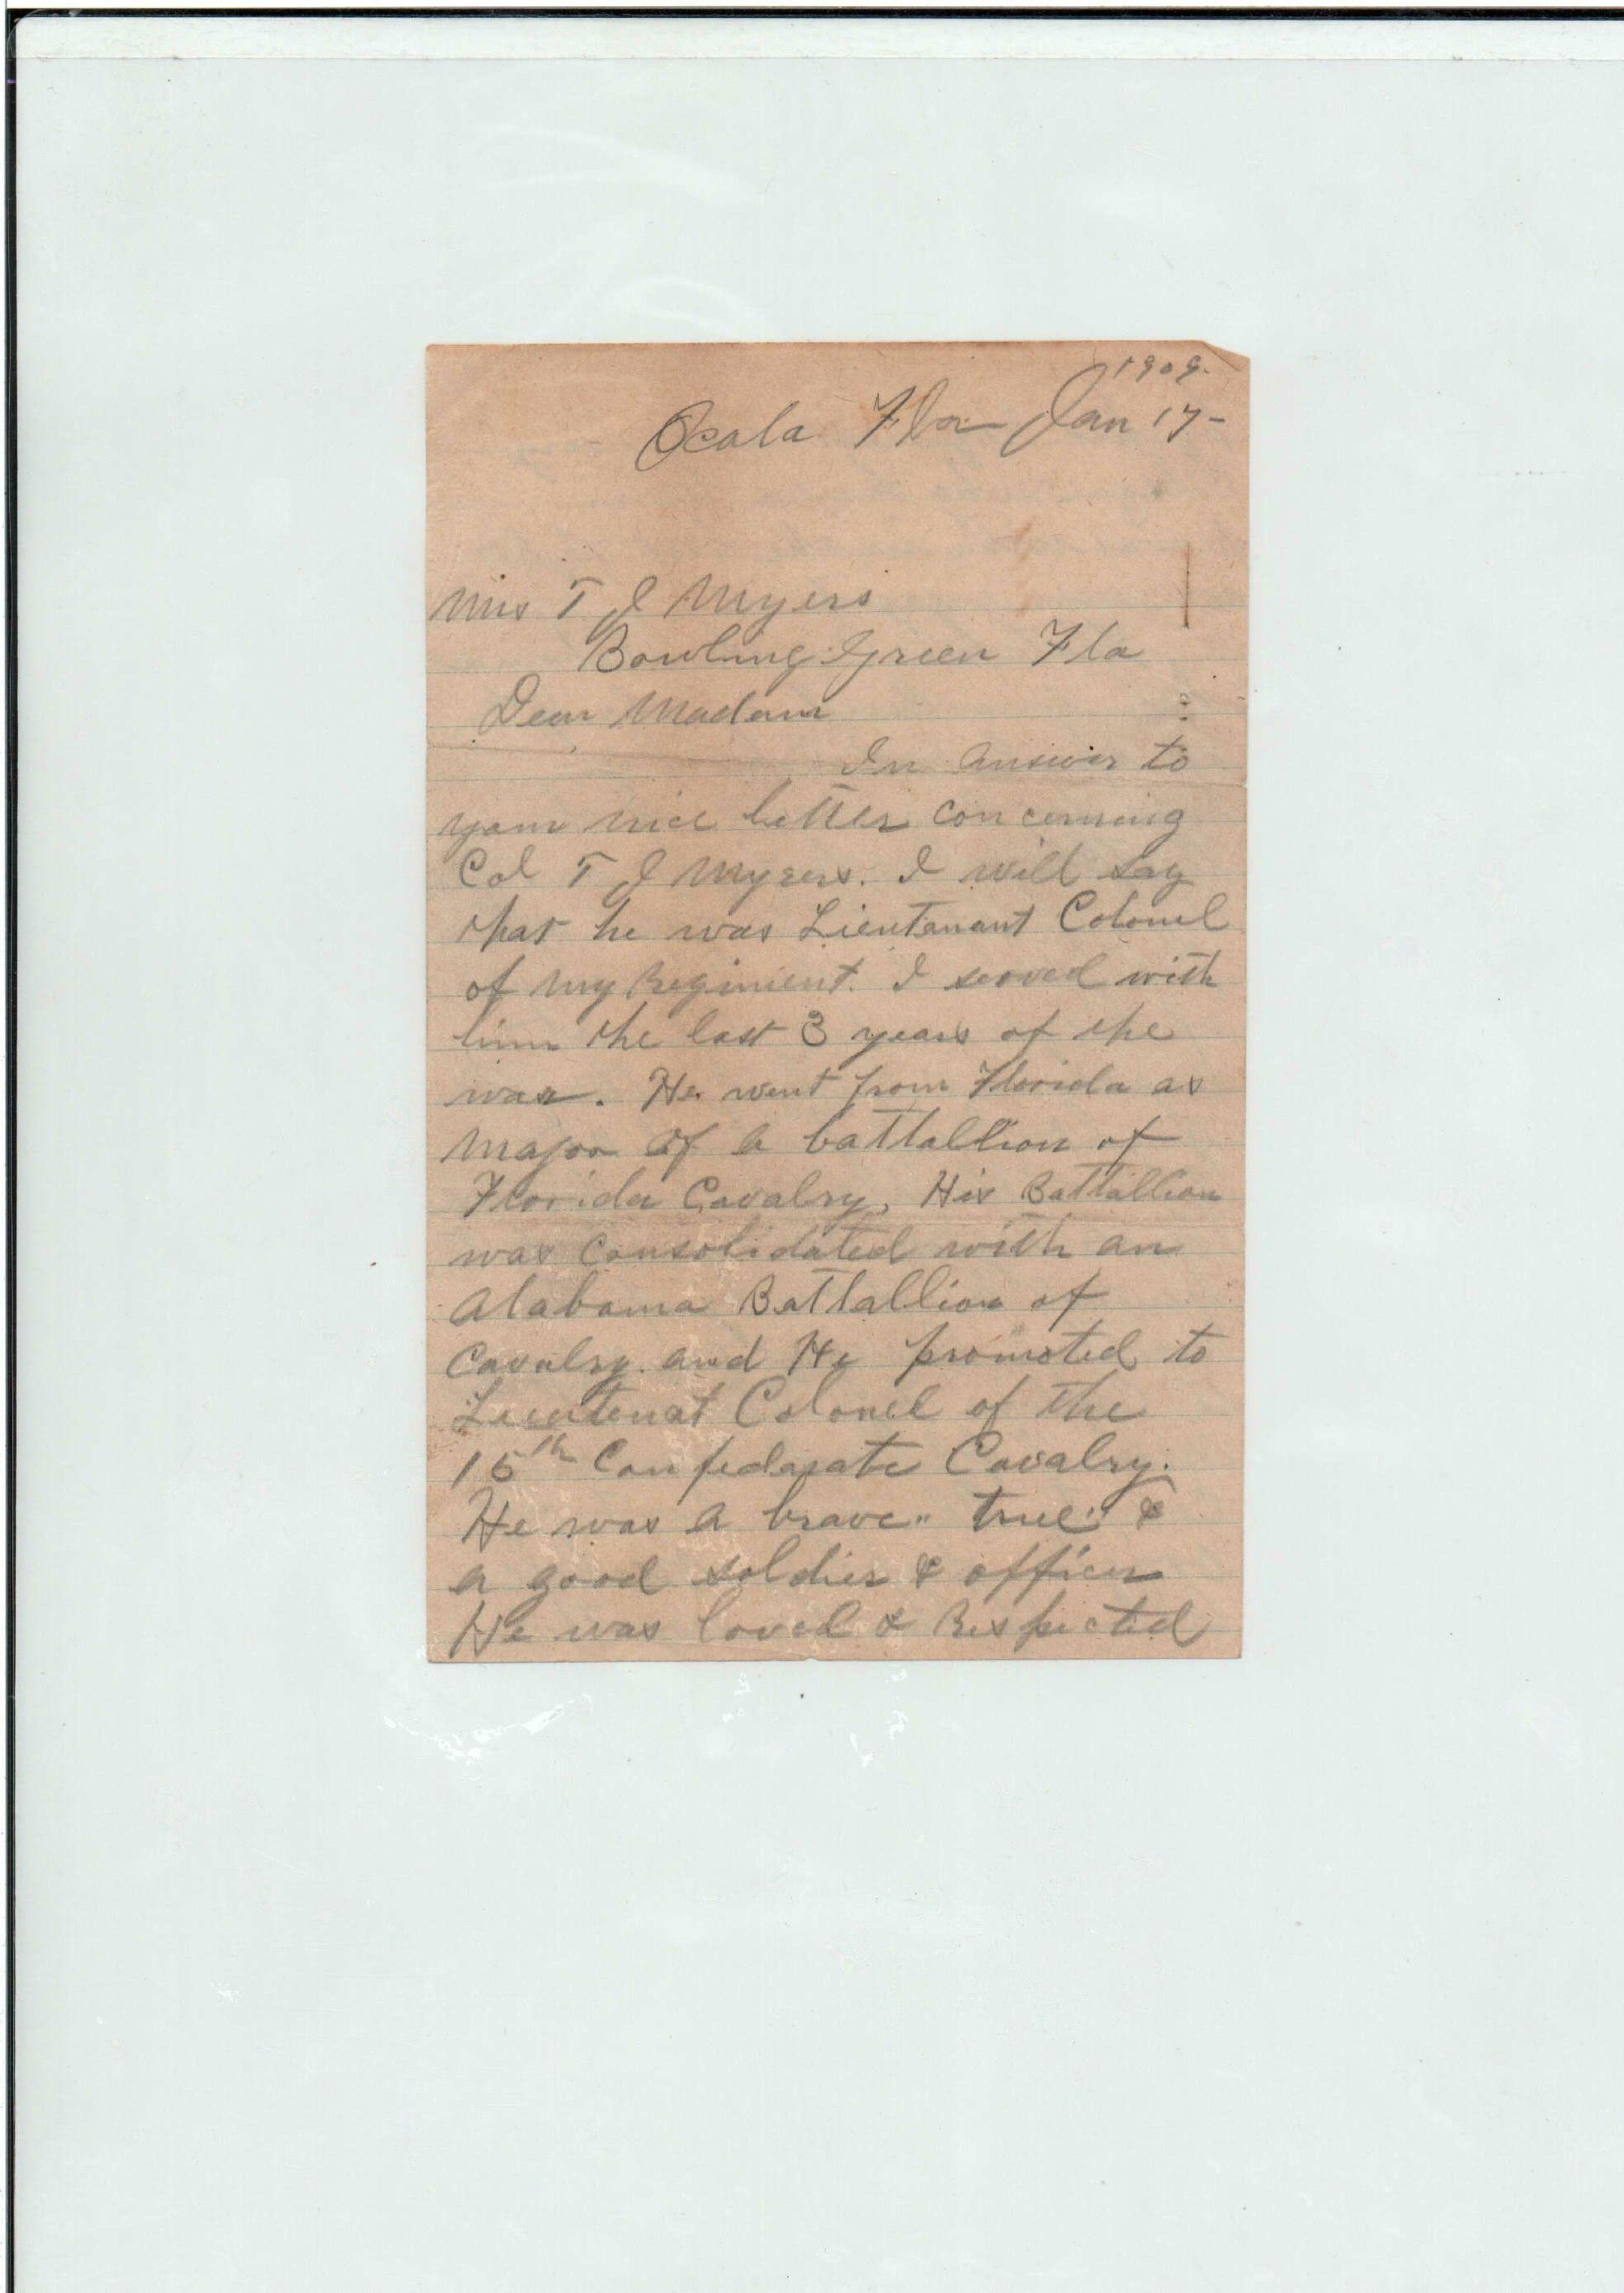 1909.
Ocala Fla Jan 17-
Mrs T J Myers
Bowling Green Fla
Dear Madam :
In answer to
your nice letter concerning
Col T J Myers. I will say
that he was Lieutenant Colonel
of my Regiment. I served with
him the last 3 years of the
war. He went from Florida as
Major of a battallion of
Florida Cavalry, His Battallion
was Consolidated with an
Alabama Battallion of
Cavalry. and He promoted to
Lieutenat Colonel of the
15th Confedarate Cavalry.
He was a brave" true" &
a good soldier & officer
He was loved & Respected